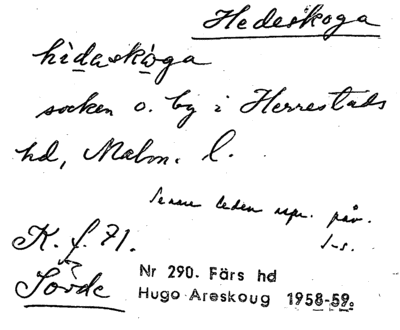 Hedeskoga
hidaskoga
socken o. by i Herrestads
hd, Malm. l.
Senare leden upr. päv.
K. f. 71.
Sövde
Nr 290. Färs hd
Hugo Areskoug 1958-59.